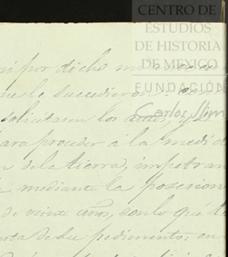 CENTRO DE
ESTUDIOS
DE HISTORIA
DE MEXICO
FUNDACIÓN
Carlos Slim
por dicho
que le sucedieron
solicitaron los
para proceder a la medi
de la tierra, impetran
mediante la posesion
de veinte años, con lo que
de su pedimento, en